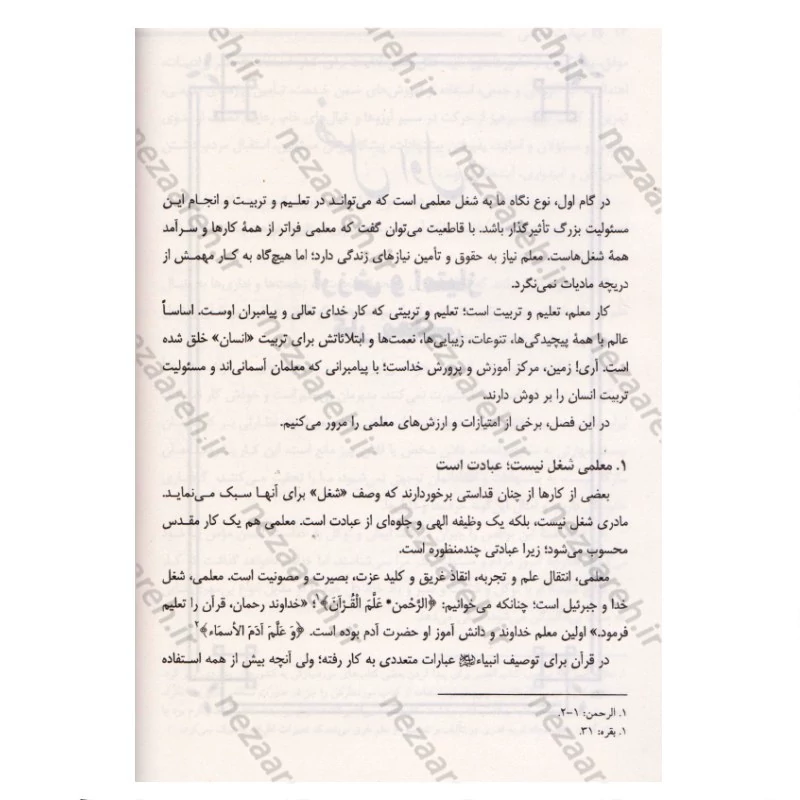 در گام اول، نوع نگاه ما به شغل معلمی است که می‌تواند در تعلیم و تربیت و انجام این
مسئولیت بزرگ تأثیرگذار باشد. با قاطعیت می‌توان گفت که معلمی فراتر از همهٔ کارها و سرآمد
همهٔ شغل‌هاست. معلم نیاز به حقوق و تأمین نیازهای زندگی دارد؛ اما هیچ‌گاه به کار مهمش از
دریچه مادیات نمی‌نگرد.
کار معلم، تعلیم و تربیت است؛ تعلیم و تربیتی که کار خدای تعالی و پیامبران اوست. اساساً
عالم با همهٔ پیچیدگی‌ها، تنوعات، زیبایی‌ها، نعمت‌ها و ابتلائاتش برای تربیت «انسان» خلق شده
است. آری! زمین، مرکز آموزش و پرورش خداست؛ با پیامبرانی که معلمان آسمانی‌اند و مسئولیت
تربیت انسان را بر دوش دارند.
در این فصل، برخی از امتیازات و ارزش‌های معلمی را مرور می‌کنیم.
۱. معلمی شغل نیست؛ عبادت است
بعضی از کارها از چنان قداستی برخوردارند که وصف «شغل» برای آنها سبک می‌نماید.
مادری شغل نیست، بلکه یک وظیفه الهی و جلوه‌ای از عبادت است. معلمی هم یک کار مقدس
محسوب می‌شود؛ زیرا عبادتی چندمنظوره است.
معلمی، انتقال علم و تجربه، انقاذ غریق و کلید عزت، بصیرت و مصونیت است. معلمی، شغل
خدا و جبرئیل است؛ چنانکه می‌خوانیم: ﴿الرَّحْمن* عَلَّمَ الْقُرْآنَ﴾۱؛ «خداوند رحمان، قرآن را تعلیم
فرمود.» اولین معلم خداوند و دانش آموز او حضرت آدم بوده است. ﴿وَ عَلَّمَ آدَمَ الأسمَاء﴾۲
در قرآن برای توصیف انبیاء عبارات متعددی به کار رفته؛ ولی آنچه بیش از همه استفاده
۱. الرحمن: ۱-۲.
۱. بقره: ۳۱.
nezaareh.ir